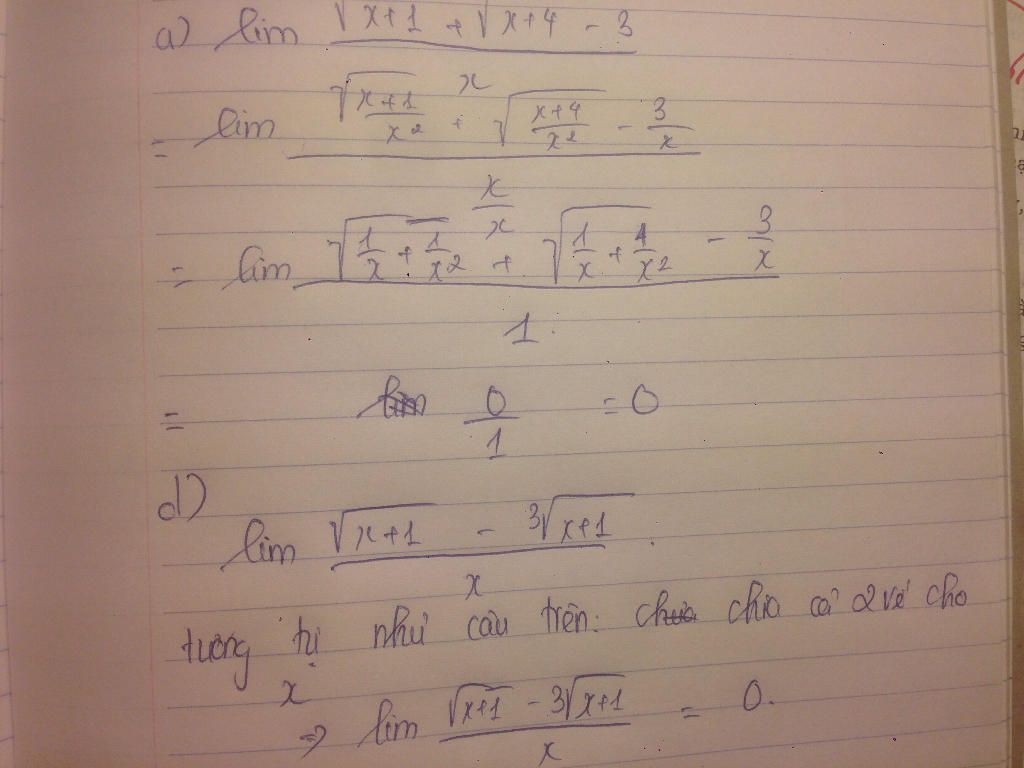 a) lim (√(x+1) + √(x+4) - 3) / x
= lim (√((x+1)/x²) + √((x+4)/x²) - 3/x) / (x/x)
= lim (√(1/x + 1/x²) + √(1/x + 4/x²) - 3/x) / 1.
= 0/1 = 0
d)
lim (√(x+1) - ³√(x+1)) / x .
tương tự như câu trên: chia cả 2 vế cho
x
⇒ lim (√(x+1) - ³√(x+1)) / x = 0.